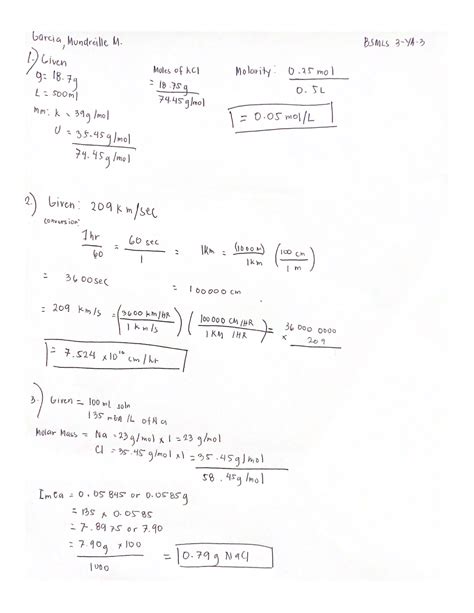 Garcia, Mundreille M. BSMLS 3-YA-3
1.) Given
g= 18.7g
L= 500ml
mm: k = 39g/mol
Cl = 35.45g/mol
74.45g/mol
Moles of KCl
= 18.75g
74.45g/mol
Molarity: 0.25 mol
0.5L
= 0.05 mol/L
2.) Given: 209 km/sec
conversion:
1hr = 60 sec = 1km = (1000m) (100 cm)
60 1 1km 1m
= 3600sec = 100000 cm
= 209 km/s = (3600 km/HR) (100000 CM/HR) = 36 000 0000
1 km/s 1 KM /HR × 209
= 7.524 ×10¹⁰ cm/hr
3.) Given = 100 ml soln
135 /L of NaCl
Molar Mass = Na = 23g/mol × 1 = 23g/mol
Cl = 35.45g/mol ×1 = 35.45g/mol
58.45g/mol
= 0.05845 or 0.0585g
= 135 × 0.0585
= 7.8975 or 7.90
= 7.90g ×100
1000
= 0.79g NaCl